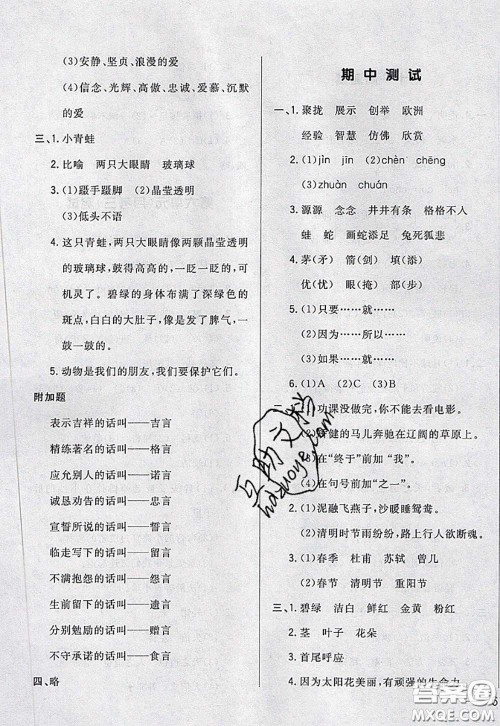 (3)安静、坚贞、浪漫的爱
(4)信念、光辉、高傲、忠诚、爱慕、沉默
的爱
三、1. 小青蛙
2. 比喻 两只大眼睛 玻璃球
3. (1)蹑手蹑脚 (2)晶莹透明
(3)低头不语
4. 这只青蛙，两只大眼睛像两颗晶莹透明
的玻璃球，鼓得高高的，一眨一眨的，可
机灵了。碧绿的身体布满了深绿色的
斑点，白白的大肚子，像发了脾气，一
鼓一鼓的。
5. 动物是我们的朋友，我们要保护它们。
附加题
表示吉祥的话叫——吉言
精练著名的话叫——格言
应允别人的话叫——诺言
诚恳劝告的话叫——忠言
宣誓所说的话叫——誓言
临走写下的话叫——留言
不满抱怨的话叫——怨言
生前留下的话叫——遗言
分别勉励的话叫——赠言
不守承诺的话叫——食言
四、略
期中测试
一、1. 聚拢 展示 创举 欧洲
经验 智慧 仿佛 欣赏
2. (1)jìn jīn (2)chèn chēng
(3)zhuàn chuán
3. 源源 念念 井井有条 格格不入
蛙 蛇 画蛇添足 兔死狐悲
4. 茅(矛) 箭(剑) 填(添)
优(忧) 眼(掩) 部(步)
5. (1)只要……就……
(2)因为……所以……
(3)如果……就……
6. (1)A (2)C (3)B
功课没做完，你不能去看电影。
健的马儿奔驰在辽阔的草原上。
在“终于”前加“我”。
(4)在句号前加“之一”。
2. (1)泥融飞燕子，沙暖睡鸳鸯。
(2)清明时节雨纷纷，路上行人欲断魂。
3. (1)春季 杜甫 苏轼 曾几
(2)春节 清明节 重阳节
三、1. 碧绿 洁白 鲜红 金黄 粉红
2. 茎 叶子 花朵
3. 首尾呼应
4. 因为太阳花美丽，有顽强的生命力
互助文档
hazuoye.com
答案圈
MXQE.COM